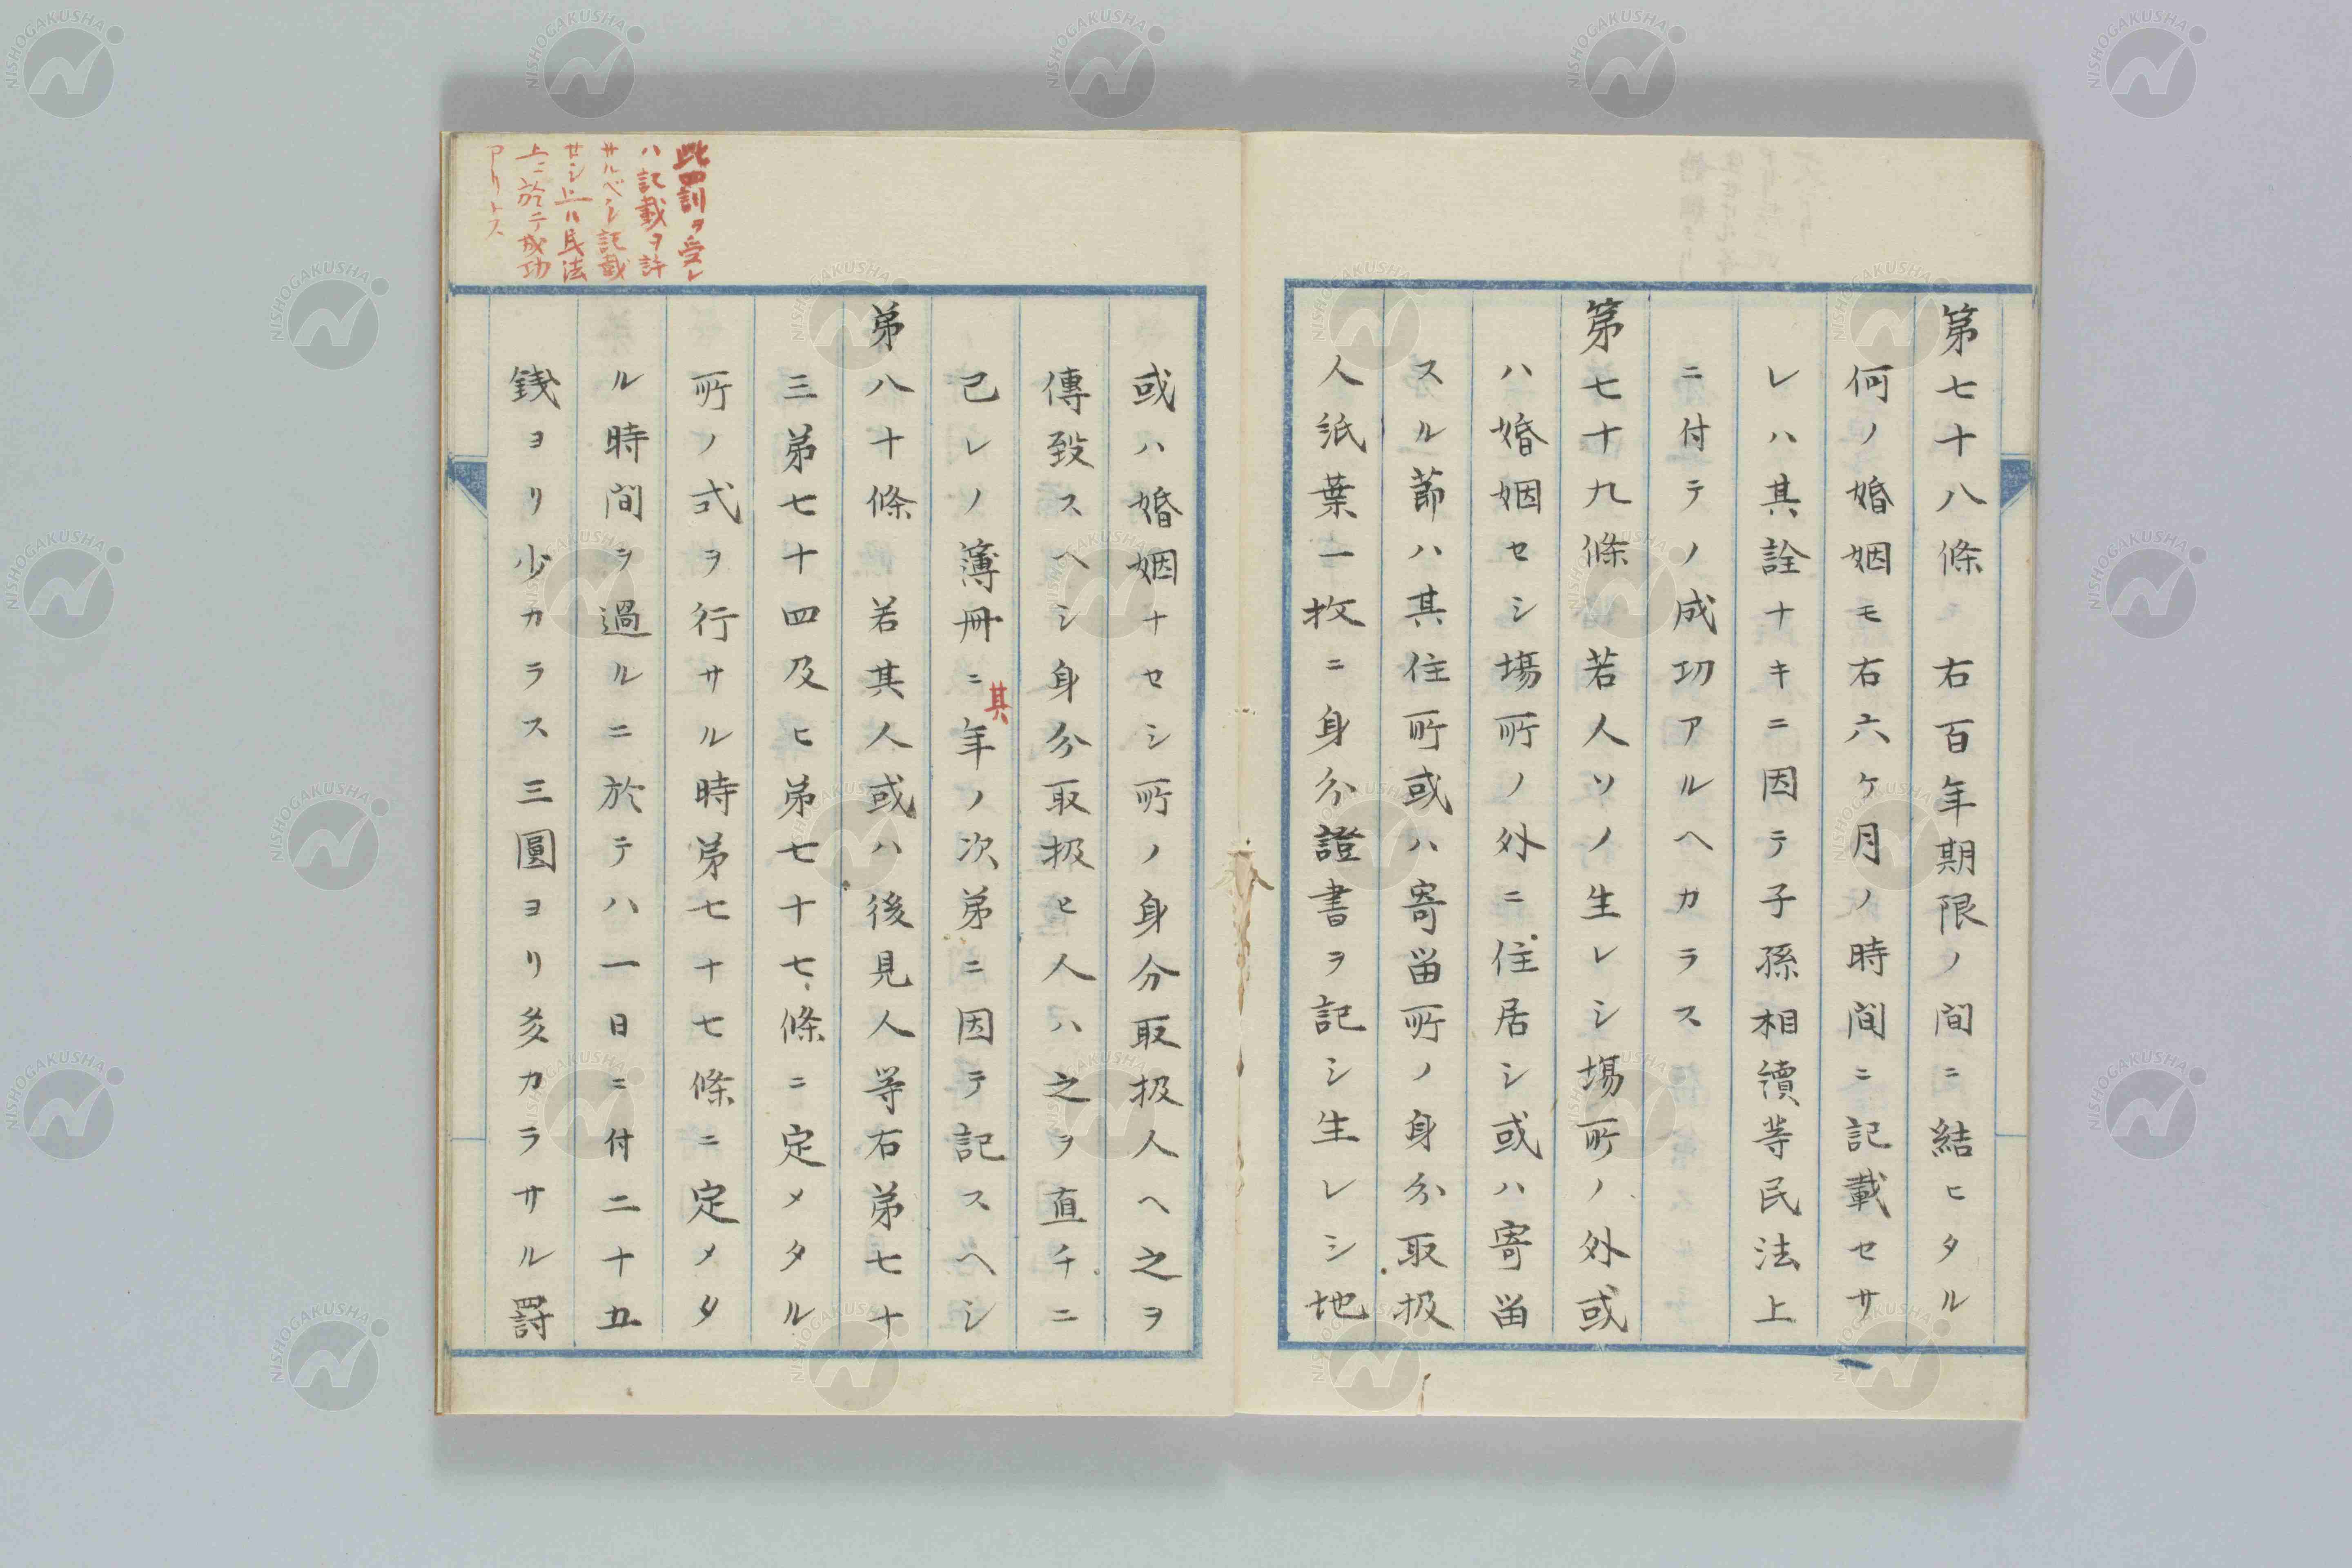 第七十八條　右百年期限ノ間ニ結ヒタル
何ノ婚姻モ右六ケ月ノ時間ニ記載セサ
レハ其詮ナキニ因テ子孫相續等民法上
ニ付テノ成功アルヘカラス
第七十九條　若人ソノ生レシ場所ノ外或
ハ婚姻セシ場所ノ外ニ住居シ或ハ寄畄
スル節ハ其住所或ハ寄畄所ノ身分取扱
人紙葉一枚ニ身分證書ヲ記シ生レシ地
或ハ婚姻ナセシ所ノ身分取扱人ヘ之ヲ
傳致スヘシ身分取扱ヒ人ハ之ヲ直チニ
己レノ簿冊ニ其年ノ次第ニ因テ記スヘシ
第八十條　若其人或ハ後見人等右第七十
三第七十四及ヒ第七十七條ニ定メタル
所ノ式ヲ行サル時第七十七條ニ定メタ
ル時間ヲ過ルニ於テハ一日ニ付二十五
錢ヨリ少カラス三圓ヨリ多カラサル罸
此四訓ヲ受レ
ハ記載ヲ許
サルベシ記載
セシ上ハ民法
上ニ於テ成功
アリトス
NISHOGAKUSHA